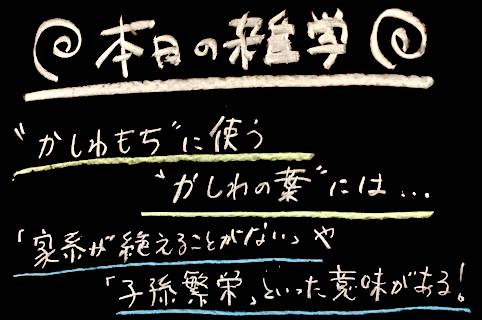 本日の雑学
"かしわもち"に使う
"かしわの葉"には...
「家系が絶えることがない」や
「子孫繁栄」といった意味がある!